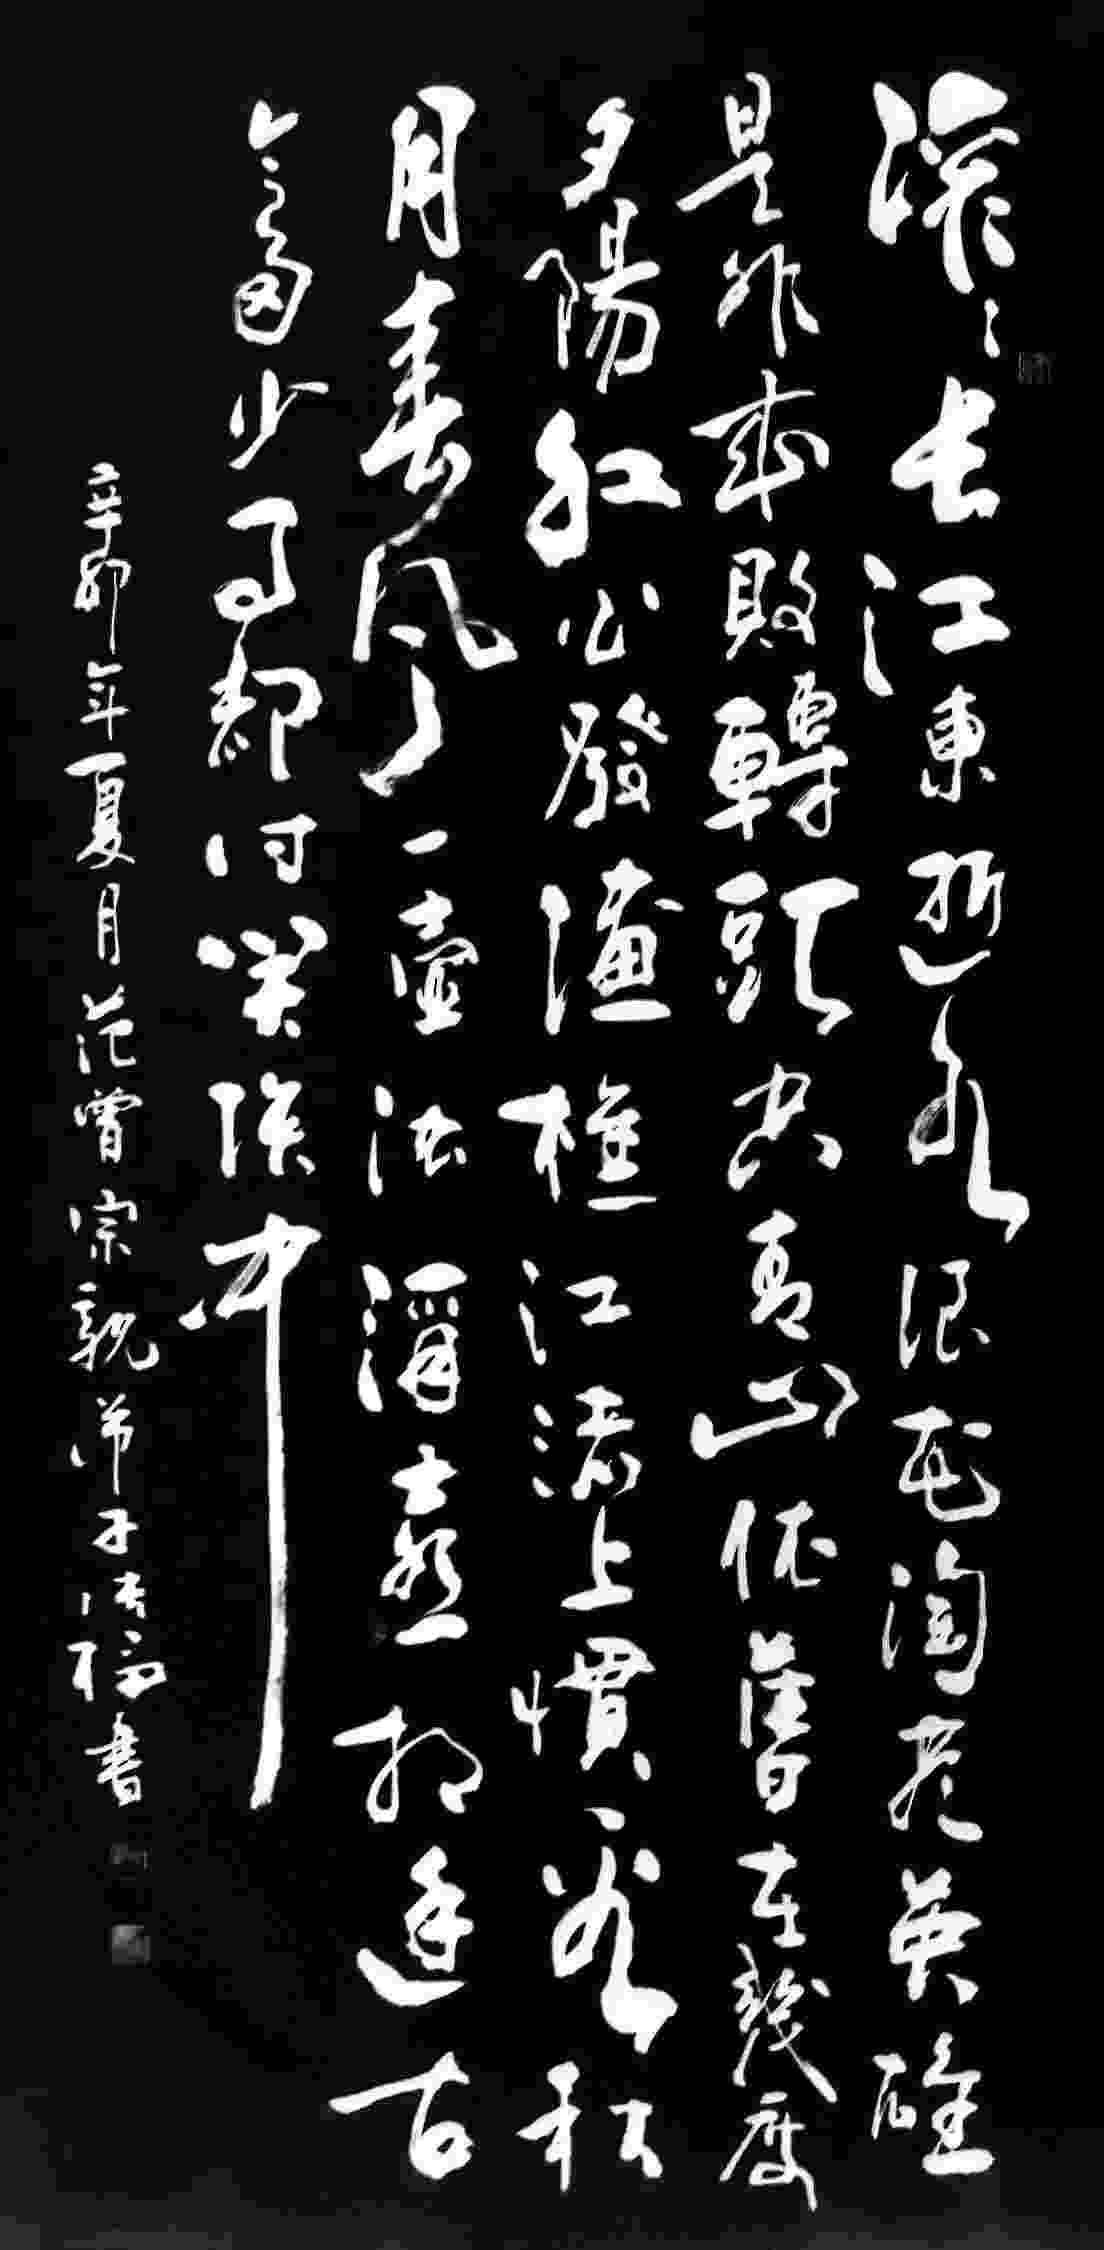 滚滚长江東逝水浪花淘尽英雄
是非成敗轉頭空青山依舊在幾度
夕陽红白發漁樵江渚上慣看秋
月春风一壺浊酒喜相逢古
今多少事都付笑談中
辛卯年夏月范曾宗親弟子福書